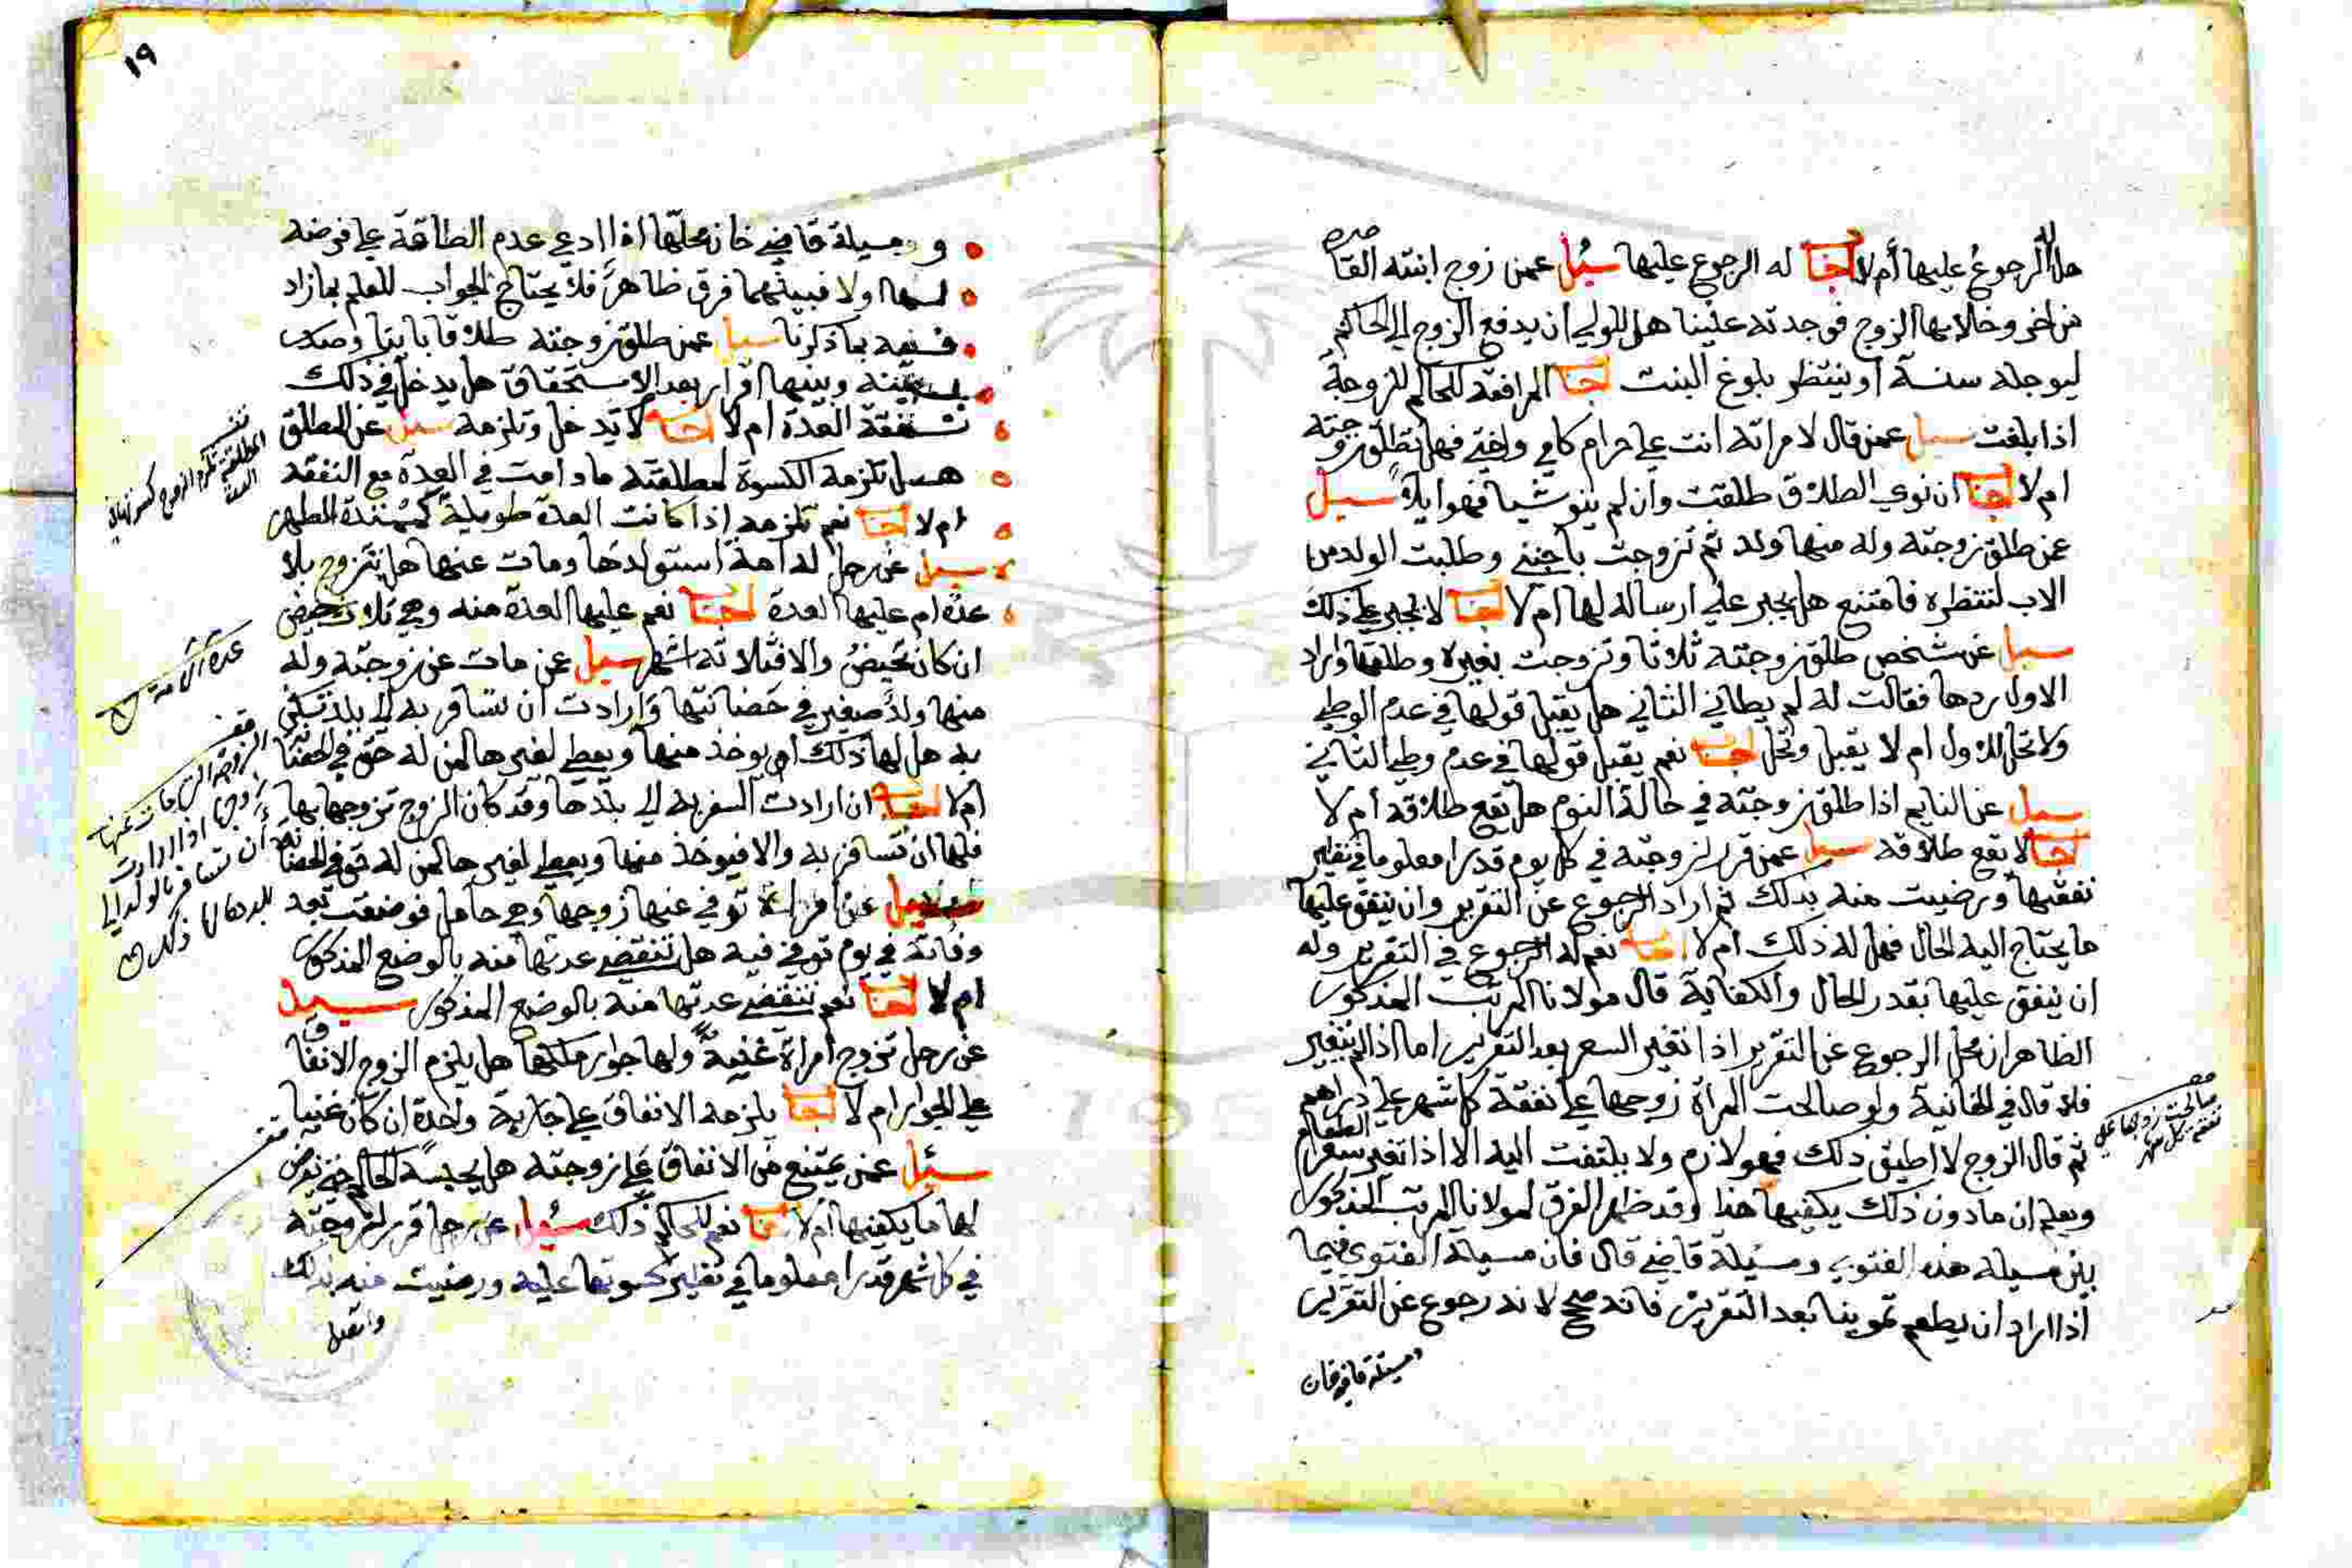 هل له الرجوع عليها أم لا اجاب له الرجوع عليها سئل عمن زوج ابنته القاصره
من اخر وخلا بها الزوج فوجدته عنينا هل للولي ان يدفع الزوج الى الحاكم
ليوجله سنة او ينتظر بلوغ البنت اجاب المرافعة للحاكم للزوجة
اذا بلغت سيل عمن قال لامراته انت علي حرام كامي واختي فهل تطلق زوجته
ام لا اجاب ان نوى الطلاق طلقت وان لم ينو شيا فهو ايلاً سيل
عمن طلق زوجته وله منها ولد ثم تزوجت باجنبي وطلبت الولد من
الاب لتنظره فامتنع هل يجبر على ارساله لها ام لا اجاب لا يجبر على ذلك
سيل عن شخص طلق زوجته ثلاثا وتزوجت بغيره وطلقها واراد
الاول ردها فقالت له لم يطاني الثاني هل يقبل قولها في عدم الوطي
ولا تحل للاول ام لا يقبل وتحل اجاب نعم يقبل قولها في عدم وطي الثاني
سيل عن النايم اذا طلق زوجته في حالة النوم هل يقع طلاقه ام لا
اجاب لا يقع طلاقه سيل عمن قرر لزوجته في كل يوم قدرا معلوما في نظير
نفقتها ورضيت منه بذلك ثم اراد الرجوع عن التقرير وان ينفق عليها
ما يحتاج اليه الحال فهل له ذلك ام لا اجاب نعم له الرجوع في التقرير وله
ان ينفق عليها بقدر الحال والكفاية قال مولانا المرتب المذكور
الظاهر ان محل الرجوع عن التقرير اذا تغير السعر بعد التقرير اما اذا لم يتغير
فلا قال في الخانية ولو صالحت المراة زوجها على نفقة كل شهر على دراهم
ثم قال الزوج لا اطيق ذلك فهو لازم ولا يلتفت اليه الا اذا تغير سعر الطعام
ويعلم ان ما دون ذلك يكفيها هذا وقد ظهر الفرق لمولانا المرتب المذكور
بين مسيلة هذه الفتوى ومسيلة قاضي قال فان مسيلة الفتوى فيما
اذا اراد ان يطعم تموينا بعد التقرير فانه صح لانه رجوع عن التقرير
ومسئلة قاضي خان
صالحت زوجها على
نفقة كل شهر
١٩
ومسيلة قاضي خان محلها اذا ادعى عدم الطاقة على فرضه
لها اولا فبينهما فرق ظاهر فلا يحتاج الجواب للعلم بما زاد
بما ذكرنا سيل عمن طلق زوجته طلاقا باينا وصدر
بينه وبينها اقرار بعد الاستحقاق هل يدخل في ذلك
نفقة العدة ام لا اجاب لا تدخل وتلزمه سيل عن المطلق
هل تلزمه الكسوة لمطلقته ما دامت في العدة مع النفقة
ام لا اجاب نعم تلزمه اذا كانت العدة طويلة كممتدة الطهر
سيل عن رجل له امة استولدها ومات عنها هل تتزوج بلا
عدة ام عليها العدة اجاب نعم عليها العدة منه وهي ثلاث حيض
ان كان تحيض والا فثلاثة اشهر سيل عمن مات عن زوجته وله
منها ولد صغير في حضانتها وارادت ان تسافر به الى بلد تسكن
به هل لها ذلك او يوخذ منها ويعطى لغيرها لمن له حق في الحضانة
ام لا اجاب ان ارادت السفر به الى بلدها وقد كان الزوج تزوجها بها
فلها ان تسافر به والا فيوخذ منها ويعطى لغيرها لمن له حق في الحضانة
سيل عن امراة توفي عنها زوجها وهي حامل فوضعت بعد
وفاته في يوم توفي فيه هل تنقضي عدتها منه بالوضع المذكور
ام لا اجاب نعم تنقضي عدتها منه بالوضع المذكور سيل
عن رجل تزوج امراة غنية ولها جوار ملكها هل يلزم الزوج الانفاق
على الجوار ام لا اجاب يلزمه الانفاق على جارية واحدة ان كان غنيا
سئل عمن يمتنع من الانفاق على زوجته هل يحبسه الحاكم حتى يفرض
لها ما يكفيها ام لا اجاب نعم للحاكم ذلك سئل عن رجل قرر لزوجته
في كل شهر قدرا معلوما في نظير كسوتها عليه ورضيت منه بذلك
المطلقة تلزم الزوج كسوتها في
العدة
عدة الامة
الزوجة التي مات عنها
زوجها اذا ارادت
أن تسافر بالولد الى
بلدها لها ذلك